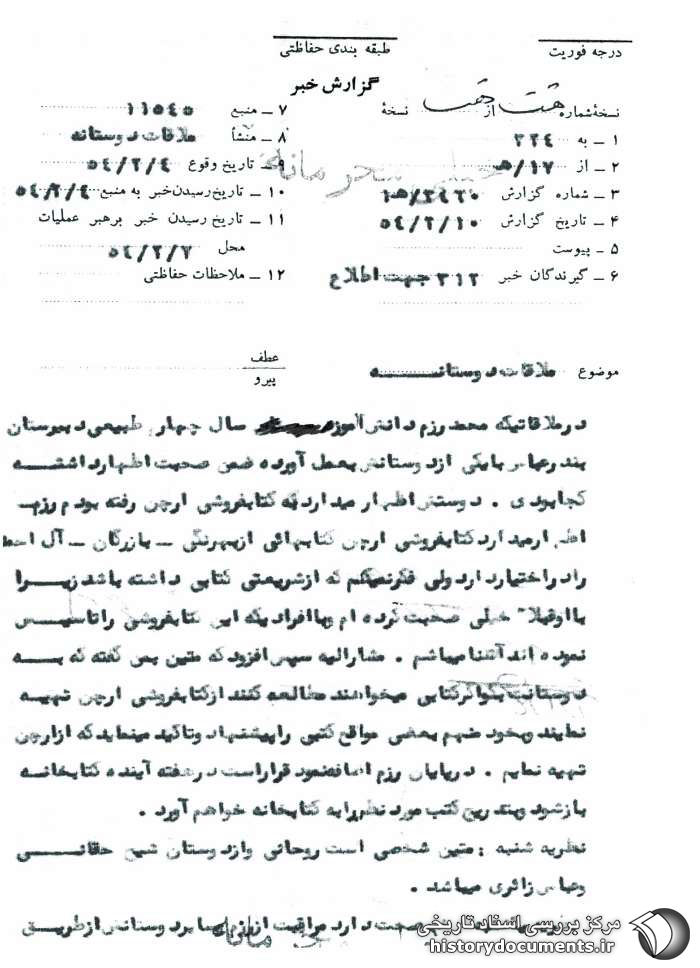 درجه فوریت
طبقه بندی حفاظتی
گزارش خبر
نسخهٔ شماره هشت از هشت نسخهٔ
۱ ــ به ۳۳٤
۲ ــ از ۱۷/ه‍
۳ ــ شماره گزارش
٤ ــ تاریخ گزارش ٥٤/۲/۱۰
٥ ــ پیوست
٦ ــ گیرندگان خبر ۳۱۲ جهت اطلاع
۷ ــ منبع ۱۱٥٤٥
۸ ــ منشأ ملاقات دوستانه
۹ ــ تاریخ وقوع ٥٤/۲/٤
۱۰ ــ تاریخ رسیدن خبر به منبع ٥٤/۲/٤
۱۱ ــ تاریخ رسیدن خبر برهبر عملیات
محل ٥٤/۲/۷
۱۲ ــ ملاحظات حفاظتی
خیلی محرمانه
عطف
پیرو
موضوع ملاقات دوستانــــــه
درملاقاتیکه محمد رزم دانش آموز سال چهارم طبیعی دبیرستان
بندرعباس بایکی ازدوستانش بعمل آورده ضمن صحبت اظهارداشتـــه
کجابودی . دوستش اظهار میدارد به کتابفروشی ارجن رفته بودم رزمــ
اظهارمیدارد کتابفروشی ارجن کتابهائی ازبهرنگی ــ بازرگان ــ آل احمد
رادراختیاردارد ولی فکرنمیکنم که ازشریعتی کتابی داشته باشد زیـــرا
بااوقبلا" خیلی صحبت کرده ام وباافرادیکه این کتابفروشی راتاسیـــس
نموده اند آشنامیباشم . مشارالیه سپس افزودکه متین بمن گفته که بـــه
دوستانت بگواگرکتابی میخواهند مطالعه کنند ازکتابفروشی ارجن تهیـــه
نمایند وبخود منهم بعضی مواقع کتبی راپیشنهاد وتاکید مینماید که ازارجن
تهیه نمایم . درپایان رزم اضافه نمود قراراست درهفته آینده کتابخانـــه
بازشود وبتدریج کتب مورد نظررابه کتابخانه خواهم آورد .
نظریه شنبه : متین شخصی است روحانی وازدوستان شیخ حقانـــی
وعباس زائری میباشد .
صحت دارد مراقبت ازرزم وسایردوستانش ازطریـــق
محرمانه
مرکز بررسی اسناد تاریخی
historydocuments.ir